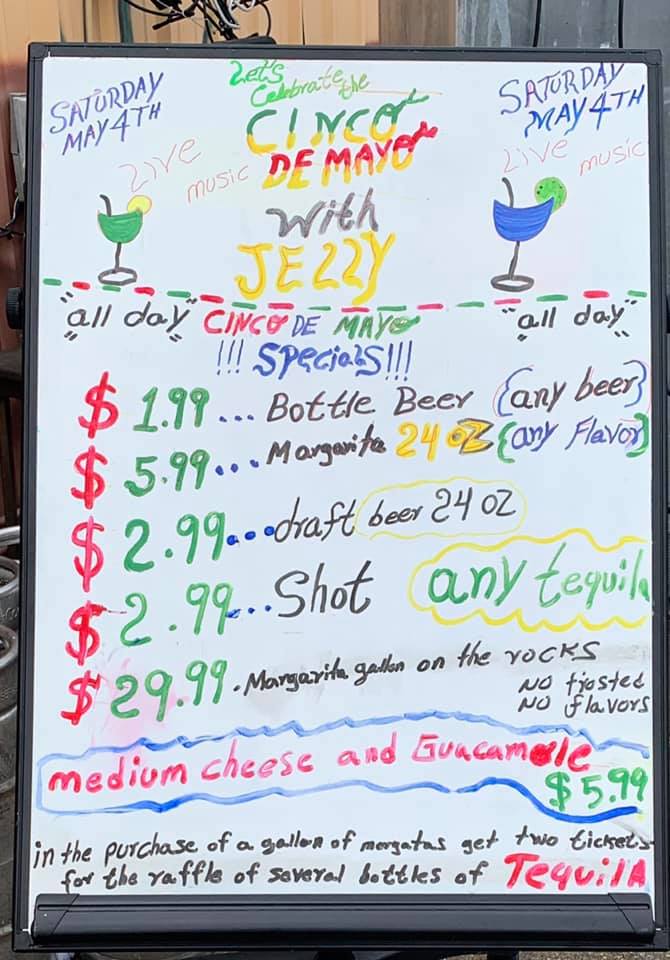 SATURDAY
MAY 4TH
Let's
Celebrate the
CINCO
DE MAYO
With
JEZZY
SATURDAY
MAY 4TH
Live
music
Live
music
"all day" CINCO DE MAYO "all day"
!!! SPecials!!!
$ 1.99... Bottle Beer {any beer}
$ 5.99... Margarita 24 oz {any Flavor}
$ 2.99... draft beer 24 OZ
$ 2.99... Shot any tequila
$ 29.99. Margarita gallon on the rocks
NO frosted
NO flavors
medium cheese and Guacamole
$ 5.99
in the purchase of a gallon of mergatas get two tickets
for the raffle of several bottles of TequilA